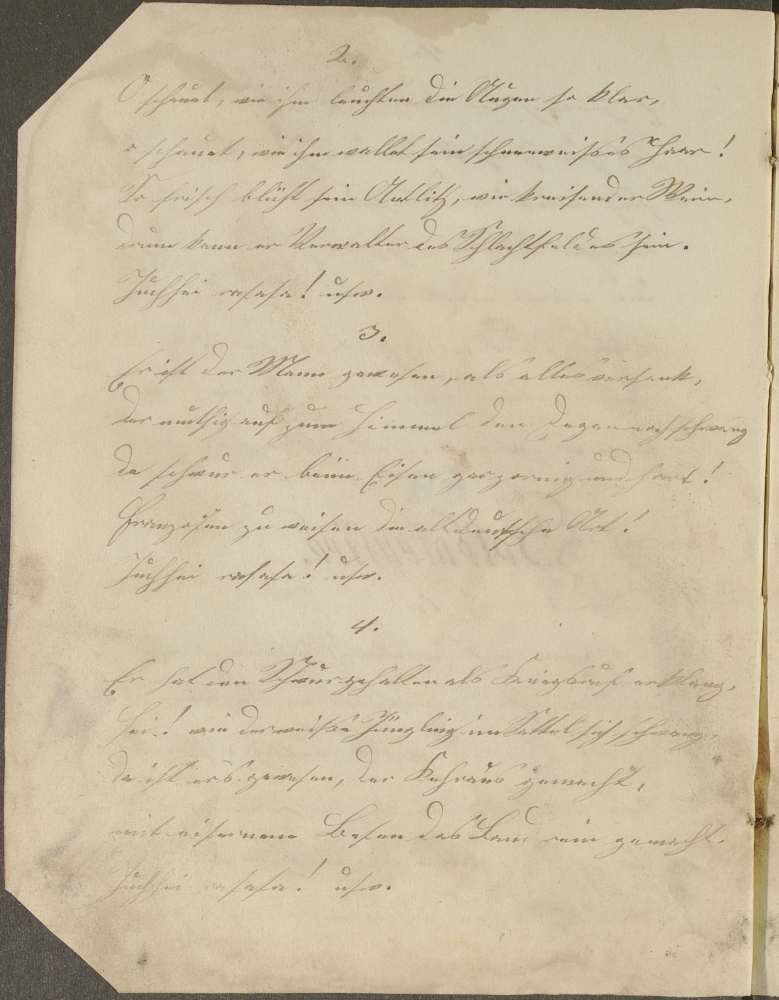 2.
O schauet, wie ihm leuchten die Augen so klar,
o schauet, wie ihm wallet sein schneeweißes Haar!
So frisch blüht sein Antlitz, wie kreisender Wein,
drum kann er Verwalter des Schlachtfeldes sein.
Juchhei rasasa! usw.
3.
Er ist der Mann gewesen, als alles versank,
der muthig auf zum Himmel den Degen noch schwang
da schwur er beim Eisen gar zornig und hart!
Franzosen zu weisen die altdeutsche Art!
Juchhei rasasa! usw.
4.
Er hat den Schwur gehalten als Kriegsruf erklang,
hei! wie der weiße Jüngling im Sattel sich schwang,
da ist er's gewesen, der Kehraus gemacht,
mit eisernem Besen das Land rein gemacht.
Juchhei rasasa! usw.